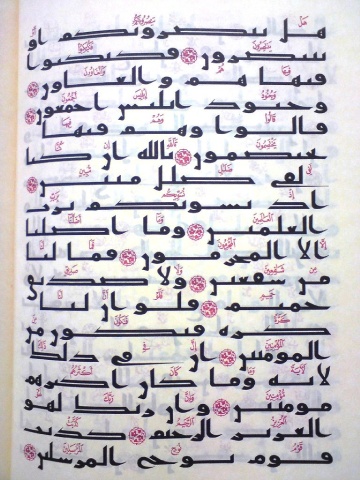 هل ينصرونكم او
ينتصرون فكبكبوا
فيها هم والغاون
وجنود ابليس اجمعون
قالوا وهم فيها
يختصمون تالله ان كنا
لفى ضلل مبين
اذ نسويكم برب
العلمين وما اضلنا
الا المجرمون فما لنا
من شفعين ولا صديق
حميم فلو ان لنا
كرة فنكون من
المومنين ان فى ذلك
لاية وما كان اكثرهم
مومنين وان ربك لهو
العزيز الرحيم كذبت
قوم نوح المرسلين